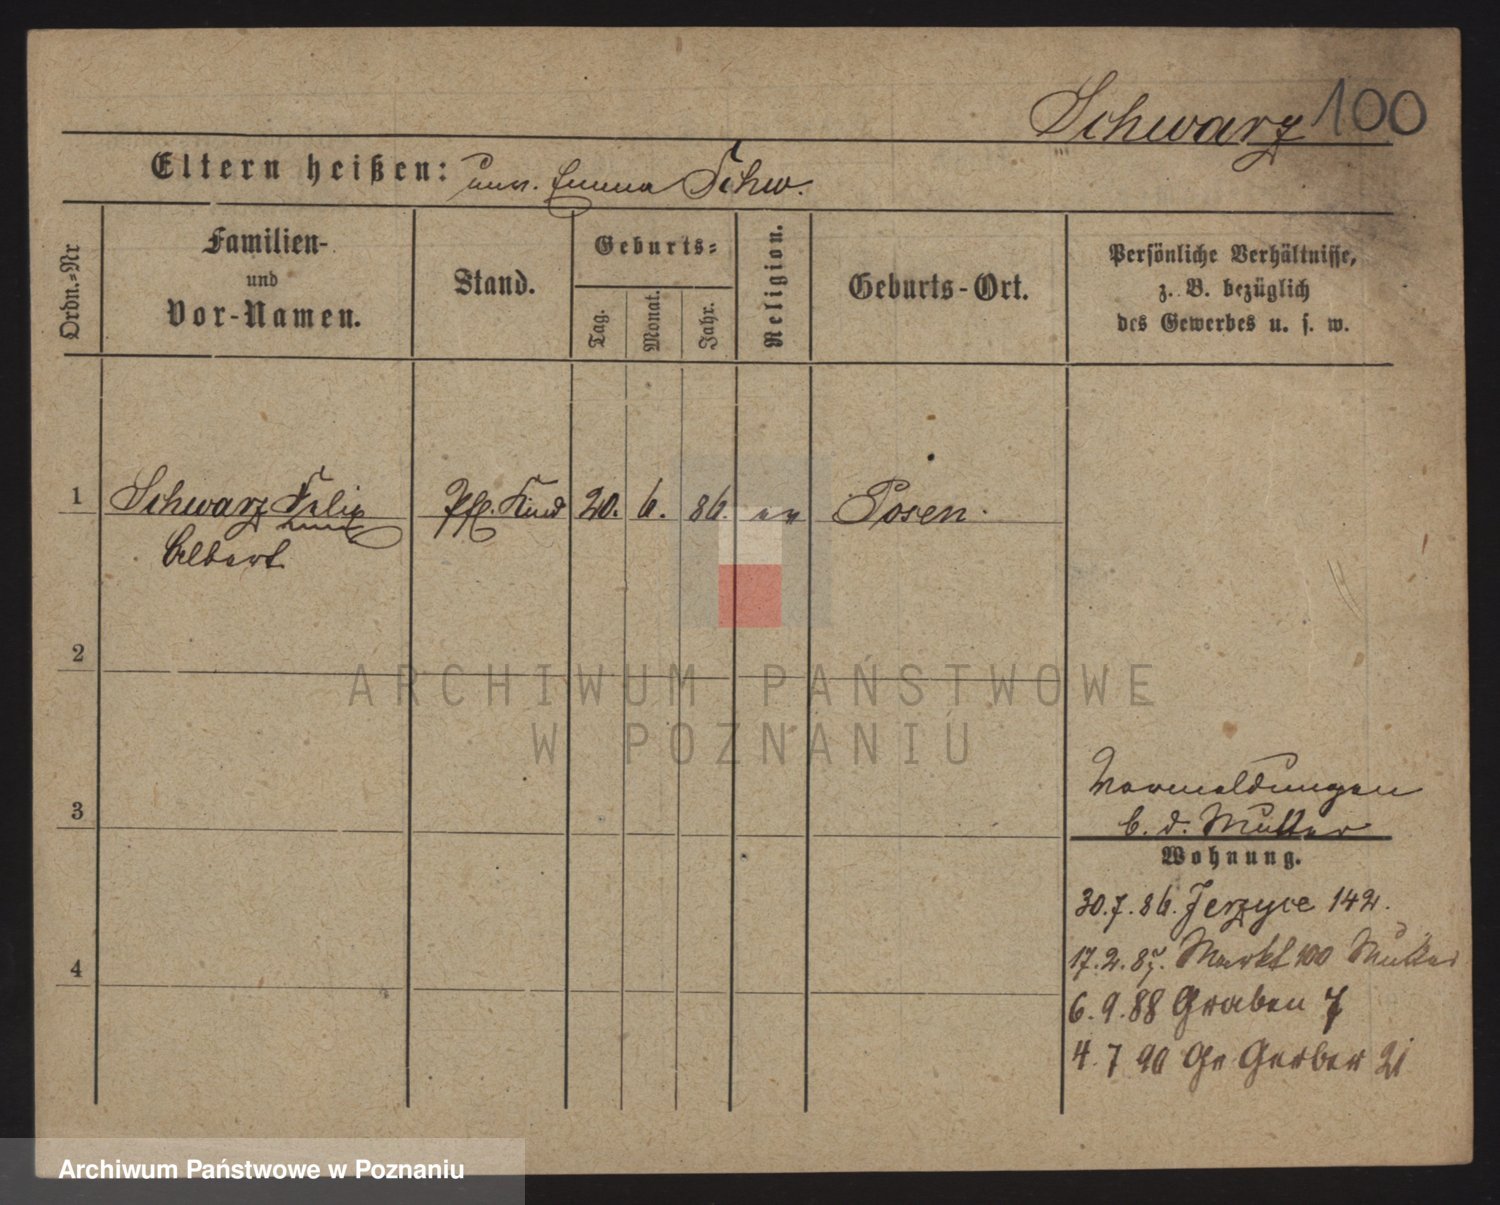 Schwarz 100
Eltern heißen: unv. Emma Schw.
Ordn.=Nr
Familien-
und
Vor-Namen.
Stand.
Geburts=
Tag.
Monat.
Jahr.
Religion.
Geburts-Ort.
Persönliche Verhältnisse,
z. B. bezüglich
des Gewerbes u. s. w.
1 Schwarz Felix Pfl. Kind 20. 6. 86. ev Posen.
Albert
2
ARCHIWUM PAŃSTWOWE
W POZNANIU
3
Vormeldungen
b. d. Mutter
Wohnung.
30.7.86. Jerzyce 142.
17.2.87. Markt 100 Mutter
4
6.9.88 Graben 7
4.7 90 Gr Gerber 21
Archiwum Państwowe w Poznaniu